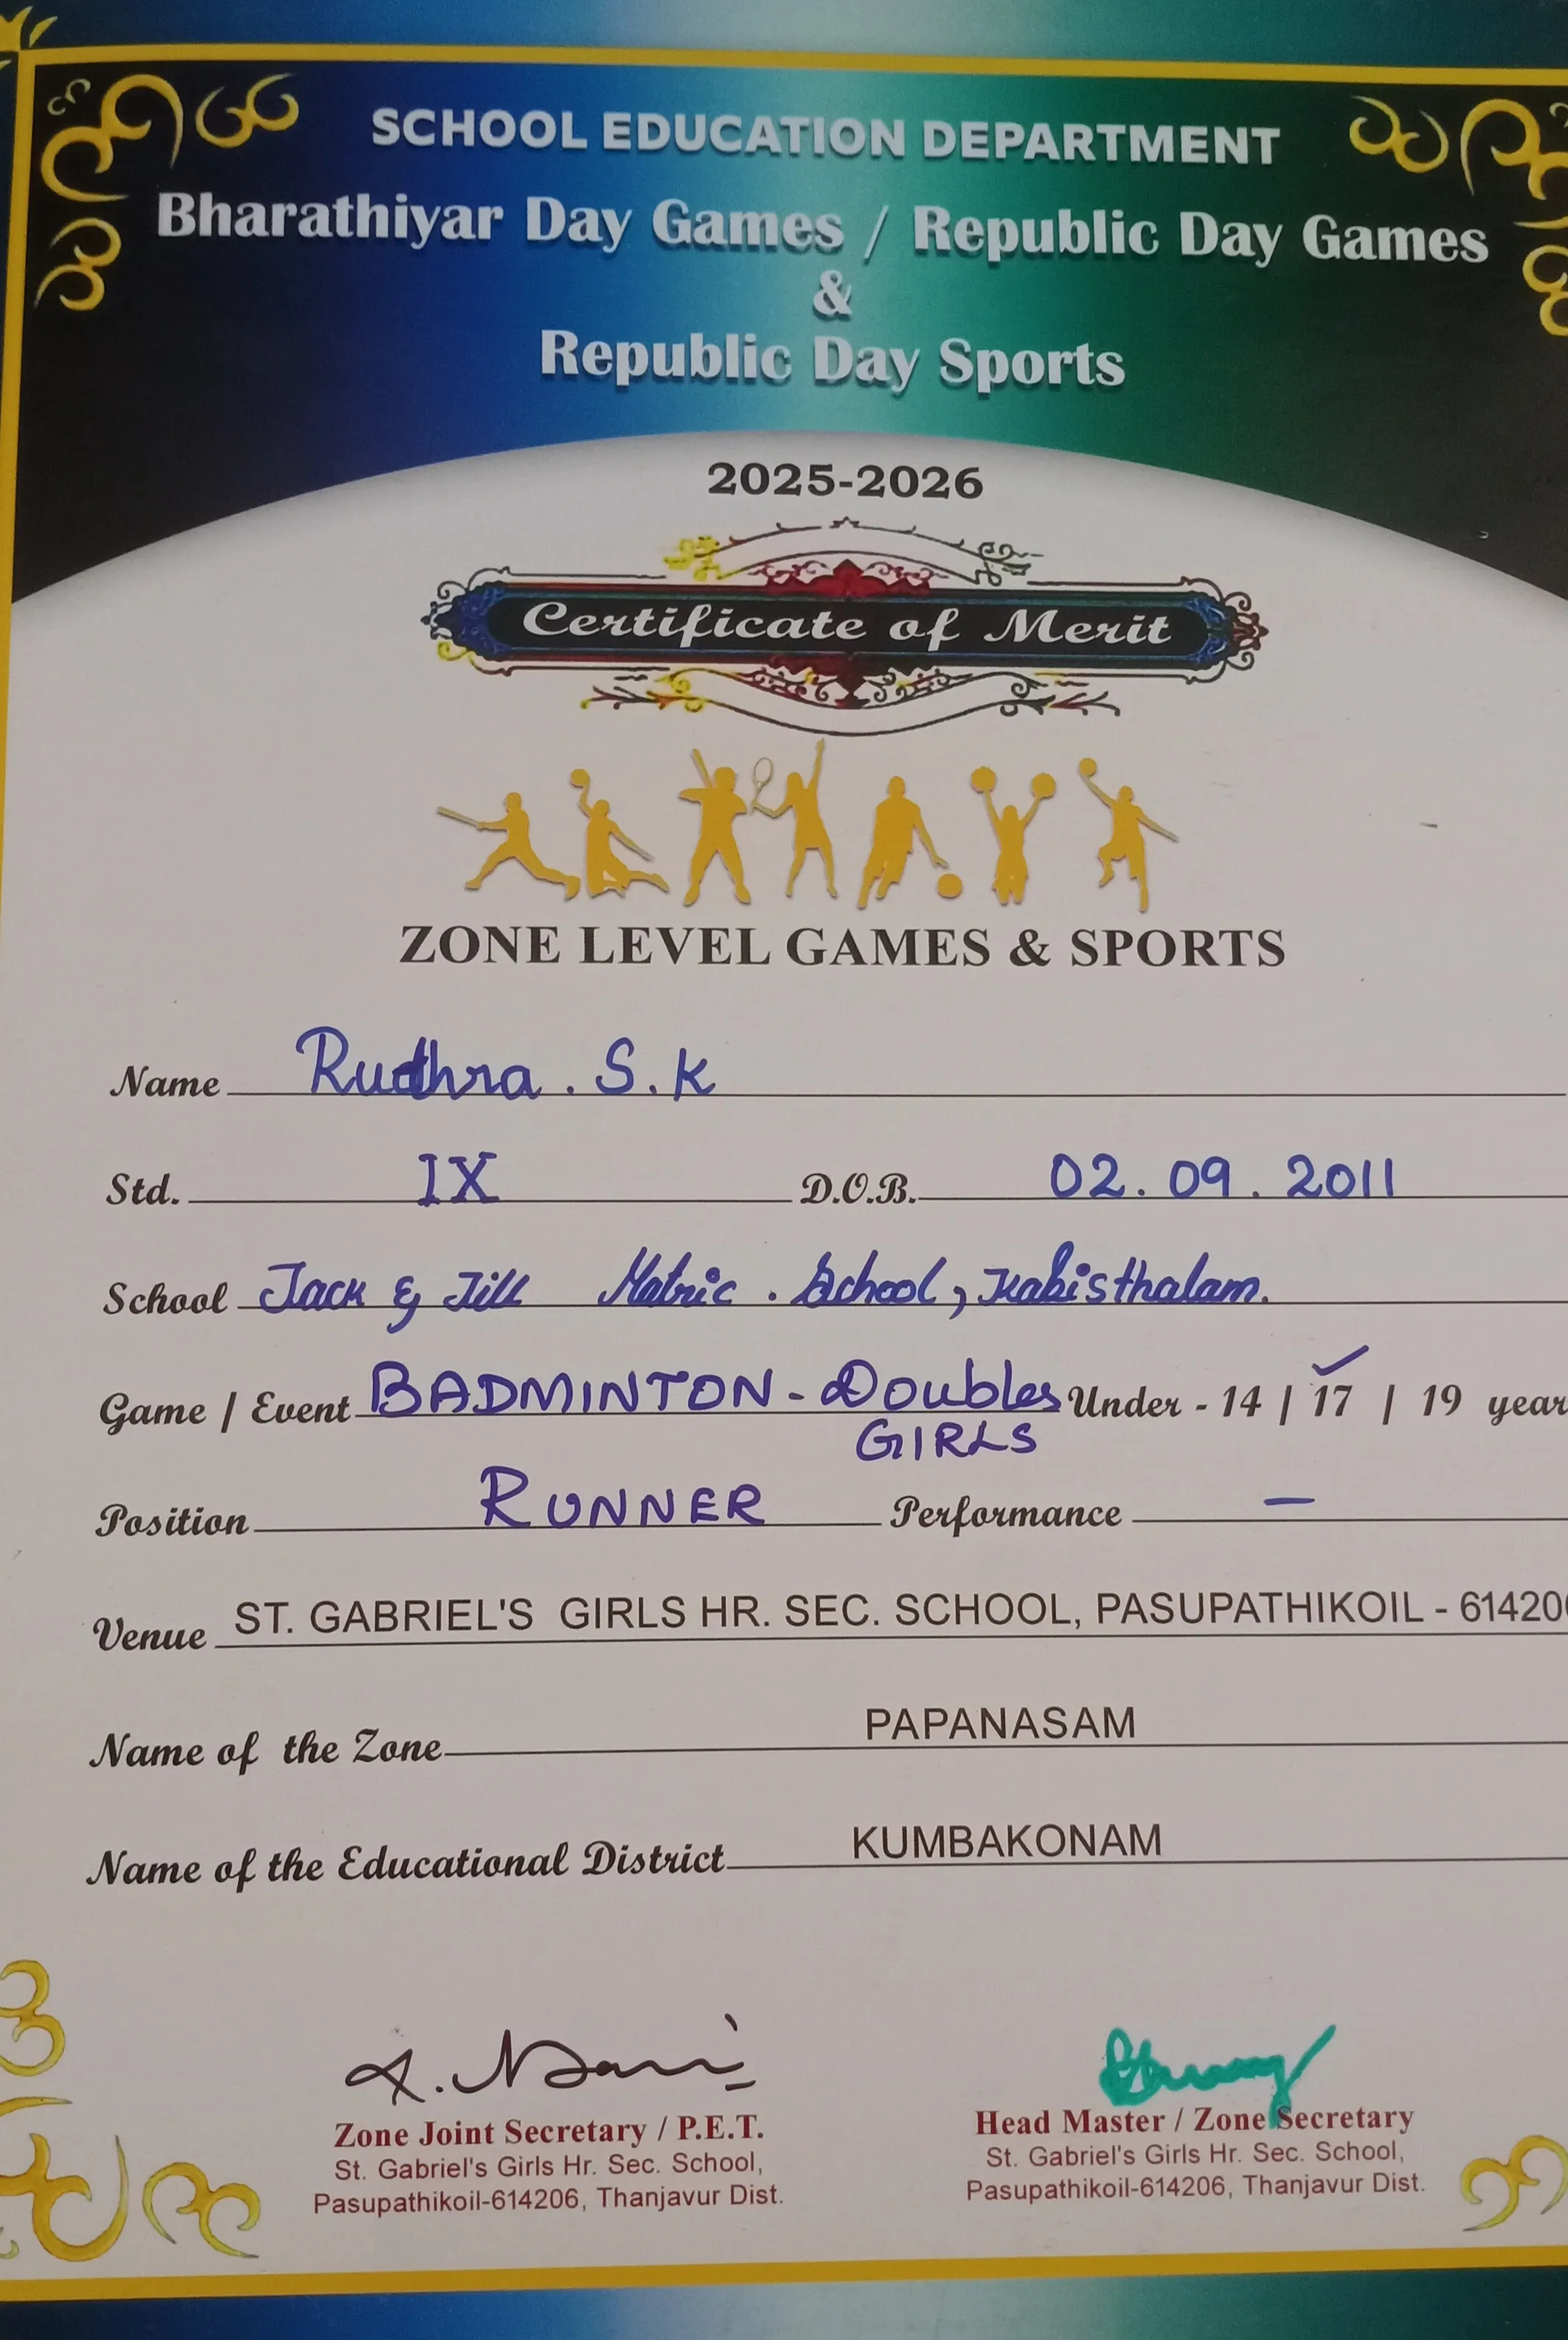 SCHOOL EDUCATION DEPARTMENT
Bharathiyar Day Games / Republic Day Games
&
Republic Day Sports
2025-2026
Certificate of Merit
ZONE LEVEL GAMES & SPORTS
Name Rudhra . S. K
Std. IX D.O.B. 02. 09. 2011
School Jack & Jill Matric . School, Kabisthalam.
Game / Event BADMINTON - Doubles Under - 14 | 17 | 19 year
GIRLS
Position RUNNER Performance —
Venue ST. GABRIEL'S GIRLS HR. SEC. SCHOOL, PASUPATHIKOIL - 61420
Name of the Zone PAPANASAM
Name of the Educational District KUMBAKONAM
Zone Joint Secretary / P.E.T.
St. Gabriel's Girls Hr. Sec. School,
Pasupathikoil-614206, Thanjavur Dist.
Head Master / Zone Secretary
St. Gabriel's Girls Hr. Sec. School,
Pasupathikoil-614206, Thanjavur Dist.